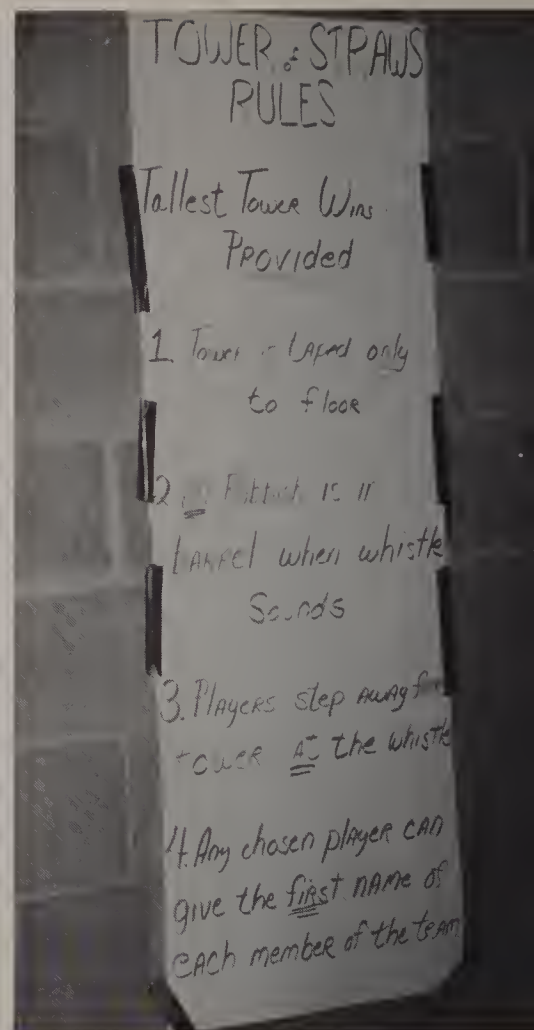 TOWER of STRAWS
RULES
Tallest Tower Wins
Provided
1. Tower is taped only
to floor
2. is
when whistle
Sounds
3. Players step away
tower AT the whistle
4. Any chosen player can
give the first name of
each member of the team